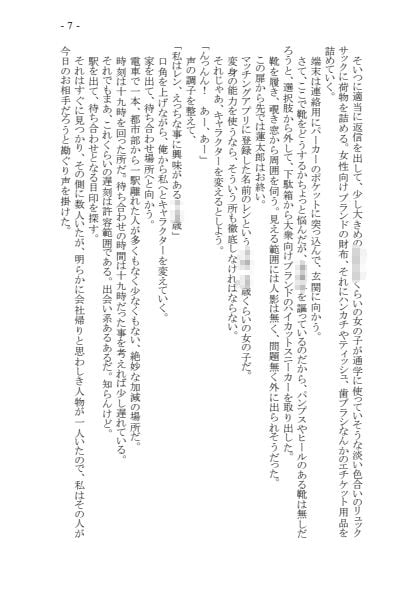 - 7 -
そいつに適当に返信を出して、少し大きめの くらいの女の子が通学に使っていそうな淡い色合いのリュック
サックに荷物を詰める。女性向けブランドの財布、それにハンカチやティッシュ、歯ブラシなんかのエチケット用品を
詰めていく。
端末は連絡用にパーカーのポケットに突っ込んで、玄関に向かう。
さて、ここで靴をどうするかちょっと悩んだが、 を謳っているのだから、パンプスやヒールのある靴は無しだ
ろうと、選択肢から外して、下駄箱から大衆向けブランドのハイカットスニーカーを取り出した。
靴を履き、覗き窓から周囲を伺う。見える範囲には人影は無く、問題無く外に出られそうだった。
この扉から先では蓮太郎はお終い。
マッチングアプリに登録した名前のレンという 歳くらいの女の子だ。
変身の能力を使うなら、そういう所も徹底しなければならない。
それじゃあ、キャラクターを変えるとしよう。
「んっんん！　あー、あー」
声の調子を整えて、
「私はレン、えっちな事に興味がある 歳」
口角を上げながら、俺から私へとキャラクターを変えていく。
家を出て、待ち合わせ場所へと向かう。
電車で一本、都市部から一駅離れた人が多くもなく少なくもない、絶妙な加減の場所だ。
時刻は十九時を回った所だ。待ち合わせの時間は十九時だった事を考えれば少し遅れている。
それでもまあ、これくらいの遅刻は許容範囲である。出会い系あるあるだ。知らんけど。
駅を出て、待ち合わせとなる目印を探す。
それはすぐに見つかり、その側に数人いたが、明らかに会社帰りと思わしき人物が一人いたので、私はその人が
今日のお相手だろうと勘ぐり声を掛けた。